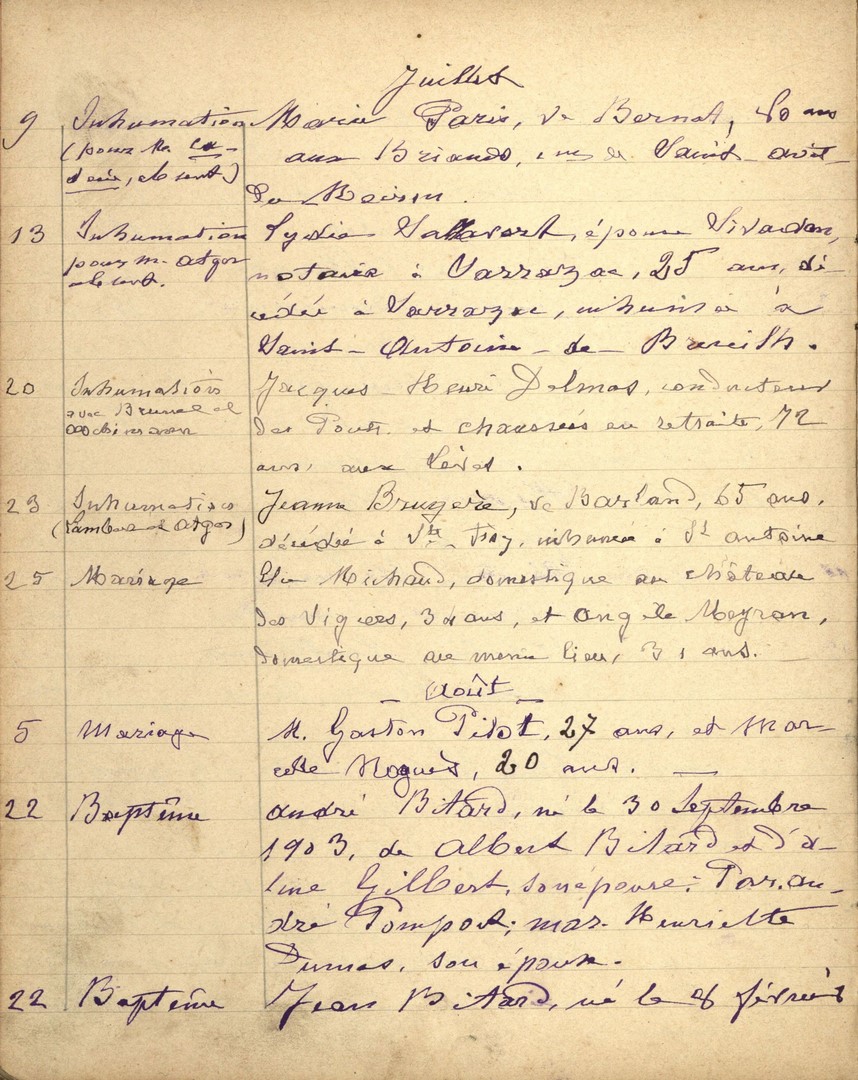 Juillet
9 Inhumation Marie Paris, ve Bernat, 80 ans
(pour M. Ca- aux Briands, cne de Saint-avit-
, absent) du Moiron.
13 Inhumation Lydia, épouse Vivadon,
pour M. Atger notaire à Varrazac, 25 ans, dé-
absent. cédée à Varrazac, inhumée à
Saint-Antoine-de-Breuilh.
20 Inhumation Jacques-Henri Delmas, conducteur
avec Brunel et des Ponts et chaussées en retraite, 72
ans, aux Lèves.
23 Inhumation Jeanne Bruyère, ve Barland, 65 ans,
(Lambert et Atger) décédée à Ste-Foy, inhumée à St antoine
25 Mariage Elie Michaud, domestique au château
des Vigiers, 34 ans, et Angèle Meyran,
domestique au même lieu, 31 ans.
Août
5 Mariage M. Gaston Pilot, 27 ans, et Mar-
celle Noguès, 20 ans.
22 Baptême André Bitard, né le 30 Septembre
1903, de Albert Bitard et d'A-
line Gilbert, son épouse: Par. An-
dré Pompot; mar. Henriette
Dumas, son épouse.
22 Baptême Jean Bitard, né le 8 février